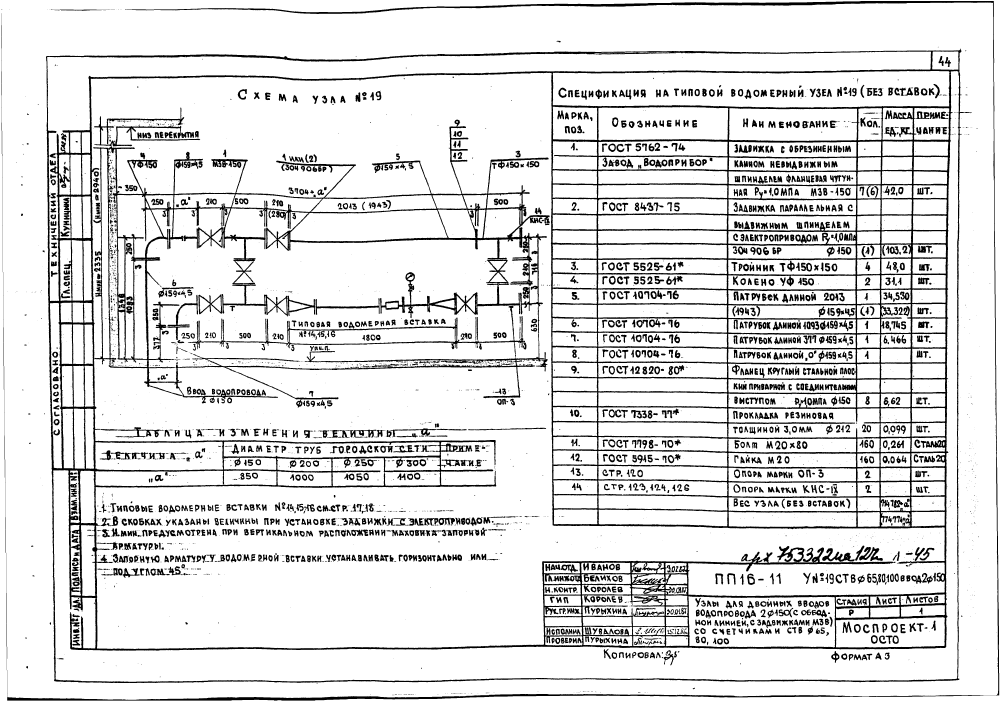 44
Схема узла №19
Низ перекрытия
4 8 1 1 или (2) 5 9 3
УФ150 Ø159×4,5 МЗВ-150 (30ч906БР) Ø159×4,5 10 ТФ150×150
11
12
350 3704-„а"
250 „а" 210 500 210 2013 (1943) 500 14
(280) КНС-IX
Нмин=2335 (Нмин=2940)
6
Ø159×4,5
Типовая водомерная вставка
№14,15,16
250 210 500 210 1800 500
377 630
Ур.ч.п.
„а"
Ввод водопровода
2Ø150
7
Ø159×4,5
13
ОП-3
Таблица изменения величины „а"
Величина „а" Диаметр труб городской сети Примечание
Ø150 Ø200 Ø250 Ø300
„а" 850 1000 1050 1100
1. Типовые водомерные вставки №14,15,16 см. стр. 17,18
2. В скобках указаны величины при установке задвижки с электроприводом.
3. Н.мин. предусмотрена при вертикальном расположении маховика запорной
арматуры.
4. Запорную арматуру у водомерной вставки устанавливать горизонтально или
под углом 45°
Спецификация на типовой водомерный узел №19 (без вставок)
Марка, поз. Обозначение Наименование Кол. Масса ед., кг. Примечание
1. ГОСТ 5762-74 Задвижка с обрезиненным
Завод „Водоприбор" клином невыдвижным
шпинделем фланцевая чугун-
ная Ру=1,0МПа МЗВ-150 7(6) 42,0 шт.
2. ГОСТ 8437-75 Задвижка параллельная с
выдвижным шпинделем
с электроприводом Ру=1,0МПа
30ч906БР Ø150 (1) (103,2) шт.
3. ГОСТ 5525-61* Тройник ТФ150×150 4 48,0 шт.
4. ГОСТ 5525-61* Колено УФ 150 2 31,1 шт.
5. ГОСТ 10704-76 Патрубок длиной 2013 1 34,530
(1943) Ø159×4,5 (1) (33,322) шт.
6. ГОСТ 10704-76 Патрубок длиной 1093 Ø159×4,5 1 18,745 шт.
7. ГОСТ 10704-76 Патрубок длиной 377 Ø159×4,5 1 6,466 шт.
8. ГОСТ 10704-76. Патрубок длиной „а" Ø159×4,5 1 шт.
9. ГОСТ 12820-80* Фланец круглый стальной плос-
кий приварной с соединительным
выступом Ру=1,0МПа Ø150 8 6,62 шт.
10. ГОСТ 7338-77* Прокладка резиновая
толщиной 3,0мм Ø212 20 0,099 шт.
11. ГОСТ 7798-70* Болт М20×80 160 0,261 Сталь20
12. ГОСТ 5915-70* Гайка М20 160 0,064 Сталь20
13. стр. 120 Опора марки ОП-3 2 шт.
14 стр. 123, 124, 126 Опора марки КНС-IX 2 шт.
Вес узла (без вставок)
арх 753322 на 122 л-45
Нач.отд. Иванов
Гл.инж.отд. Белихов
Н.контр. Королев
ГИП Королев
Рук.гр.инж. Пурыхина
Исполнил Шувалова
Проверил Пурыхина
ПП16-11 У№19СТВØ65,80,100 ввод2Ø150
Узлы для двойных вводов
водопровода 2Ø150 (с обвод-
ной линией, с задвижками МЗВ)
со счетчиками СТВ Ø65,
80, 100
Стадия Лист Листов
Р 1
Моспроект-1
ОСТО
Копировал:
Формат А3
Технический отдел
Гл.спец. Куницина
Согласовано
Взам.инв.№
Подпись и дата
Инв.№ подл.